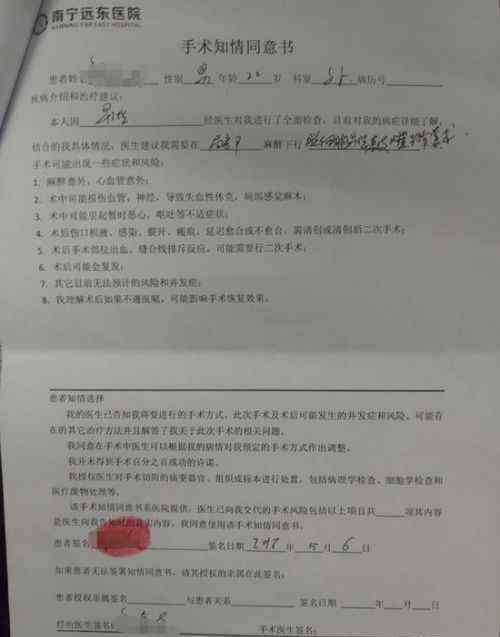 南宁远东医院
NANNING FAR EAST HOSPITAL
手术知情同意书
患者姓 性别 男 年龄 22 岁 科室 病历号
疾病介绍和治疗建议:
本人因 经医生对我进行了全面检查,目前对我的病症详细了解,
结合的我具体情况,医生建议我需要在 局麻下 麻醉下行
手术可能出现一些症状和风险:
1. 麻醉意外,心血管意外;
2. 术中可能损伤血管,神经,导致失血性休克,局部感觉麻木;
3. 术中可能引起暂时恶心,呕吐等不适症状;
4. 术后伤口积液、感染、裂开、瘢痕,延迟愈合或不愈合,需清创或清创后二次手术;
5. 术后手术部位出血、缝合线排斥反应,可能需要行二次手术;
6. 术后可能会复发;
7. 其它目前无法预计的风险和并发症;
8. 我理解术后如果不遵医嘱,可能影响手术恢复效果。
患者知情选择
我的医生已告知我将要进行的手术方式、此次手术及术后可能发生的并发症和风险、可能存
在的其它治疗方法并且解答了我关于此次手术的相关问题。
我同意在手术中医生可以根据我的病情对我预定的手术方式作出调整。
我并未得到手术百分之百成功的许诺。
我授权医生对手术切除的病变器官、组织或标本进行处置,包括病理学检查、细胞学检查和
医疗废物处理等。
该手术知情同意书系医院提供,医生已向我交代的手术风险包括以上项目共 项其内容
是医生向我告知时的真实内容,我同意使用该手术知情同意书。
患者签名 签名日期 年 5 月 6 日
如果患者无法签署知情同意书,请其授权的亲属在此签名:
患者授权亲属签名 与患者关系 签名日期 年 月 日
经治医生签名: 手术医生签名: